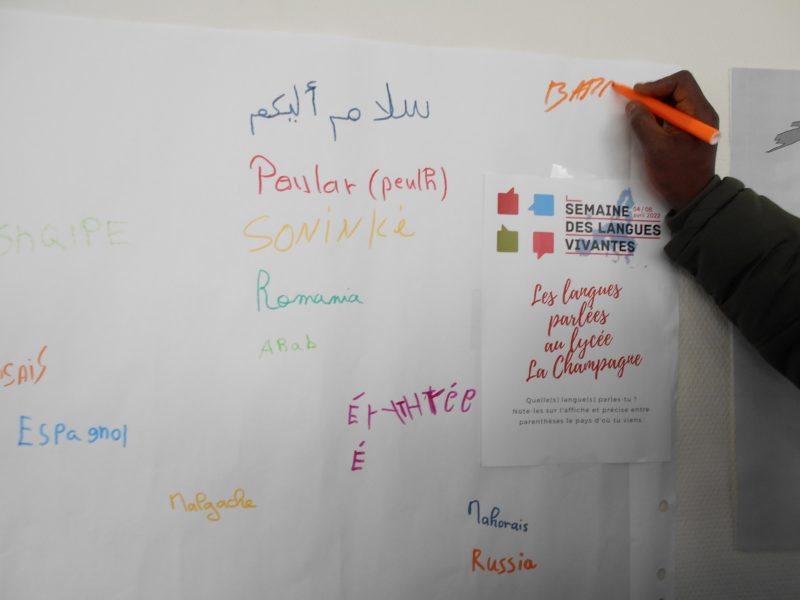 سلام أليكم
Poular (peulh)
SONINKé
SHQIPE
Romania
ARab
SAIS
Espagnol
É
Malgache
Mahorais
Russia
SEMAINE
04 / 08
avril 2022
DES LANGUES
VIVANTES
Les langues
parlées
au lycée
La Champagne
Quelle(s) langue(s) parles-tu ?
Note-les sur l'affiche et précise entre
parenthèses le pays d'où tu viens.